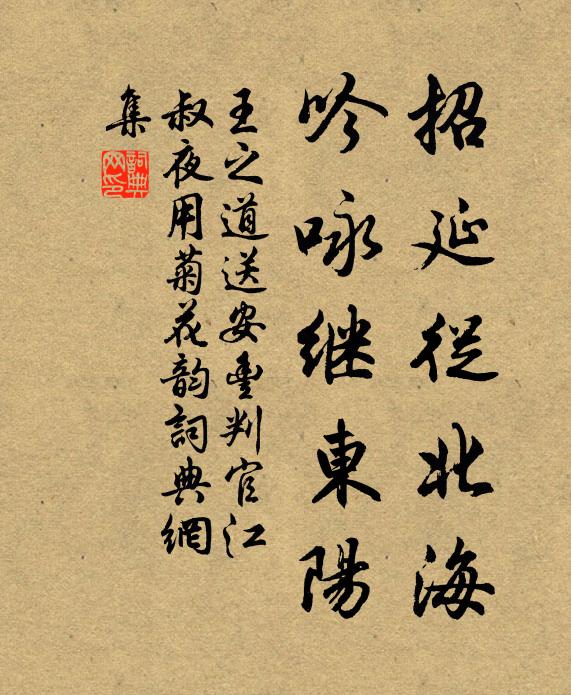 招延從北海
吟咏继東陽
王之道送安豐判官江
叔夜用菊花韵詞典網
集
詞典网印